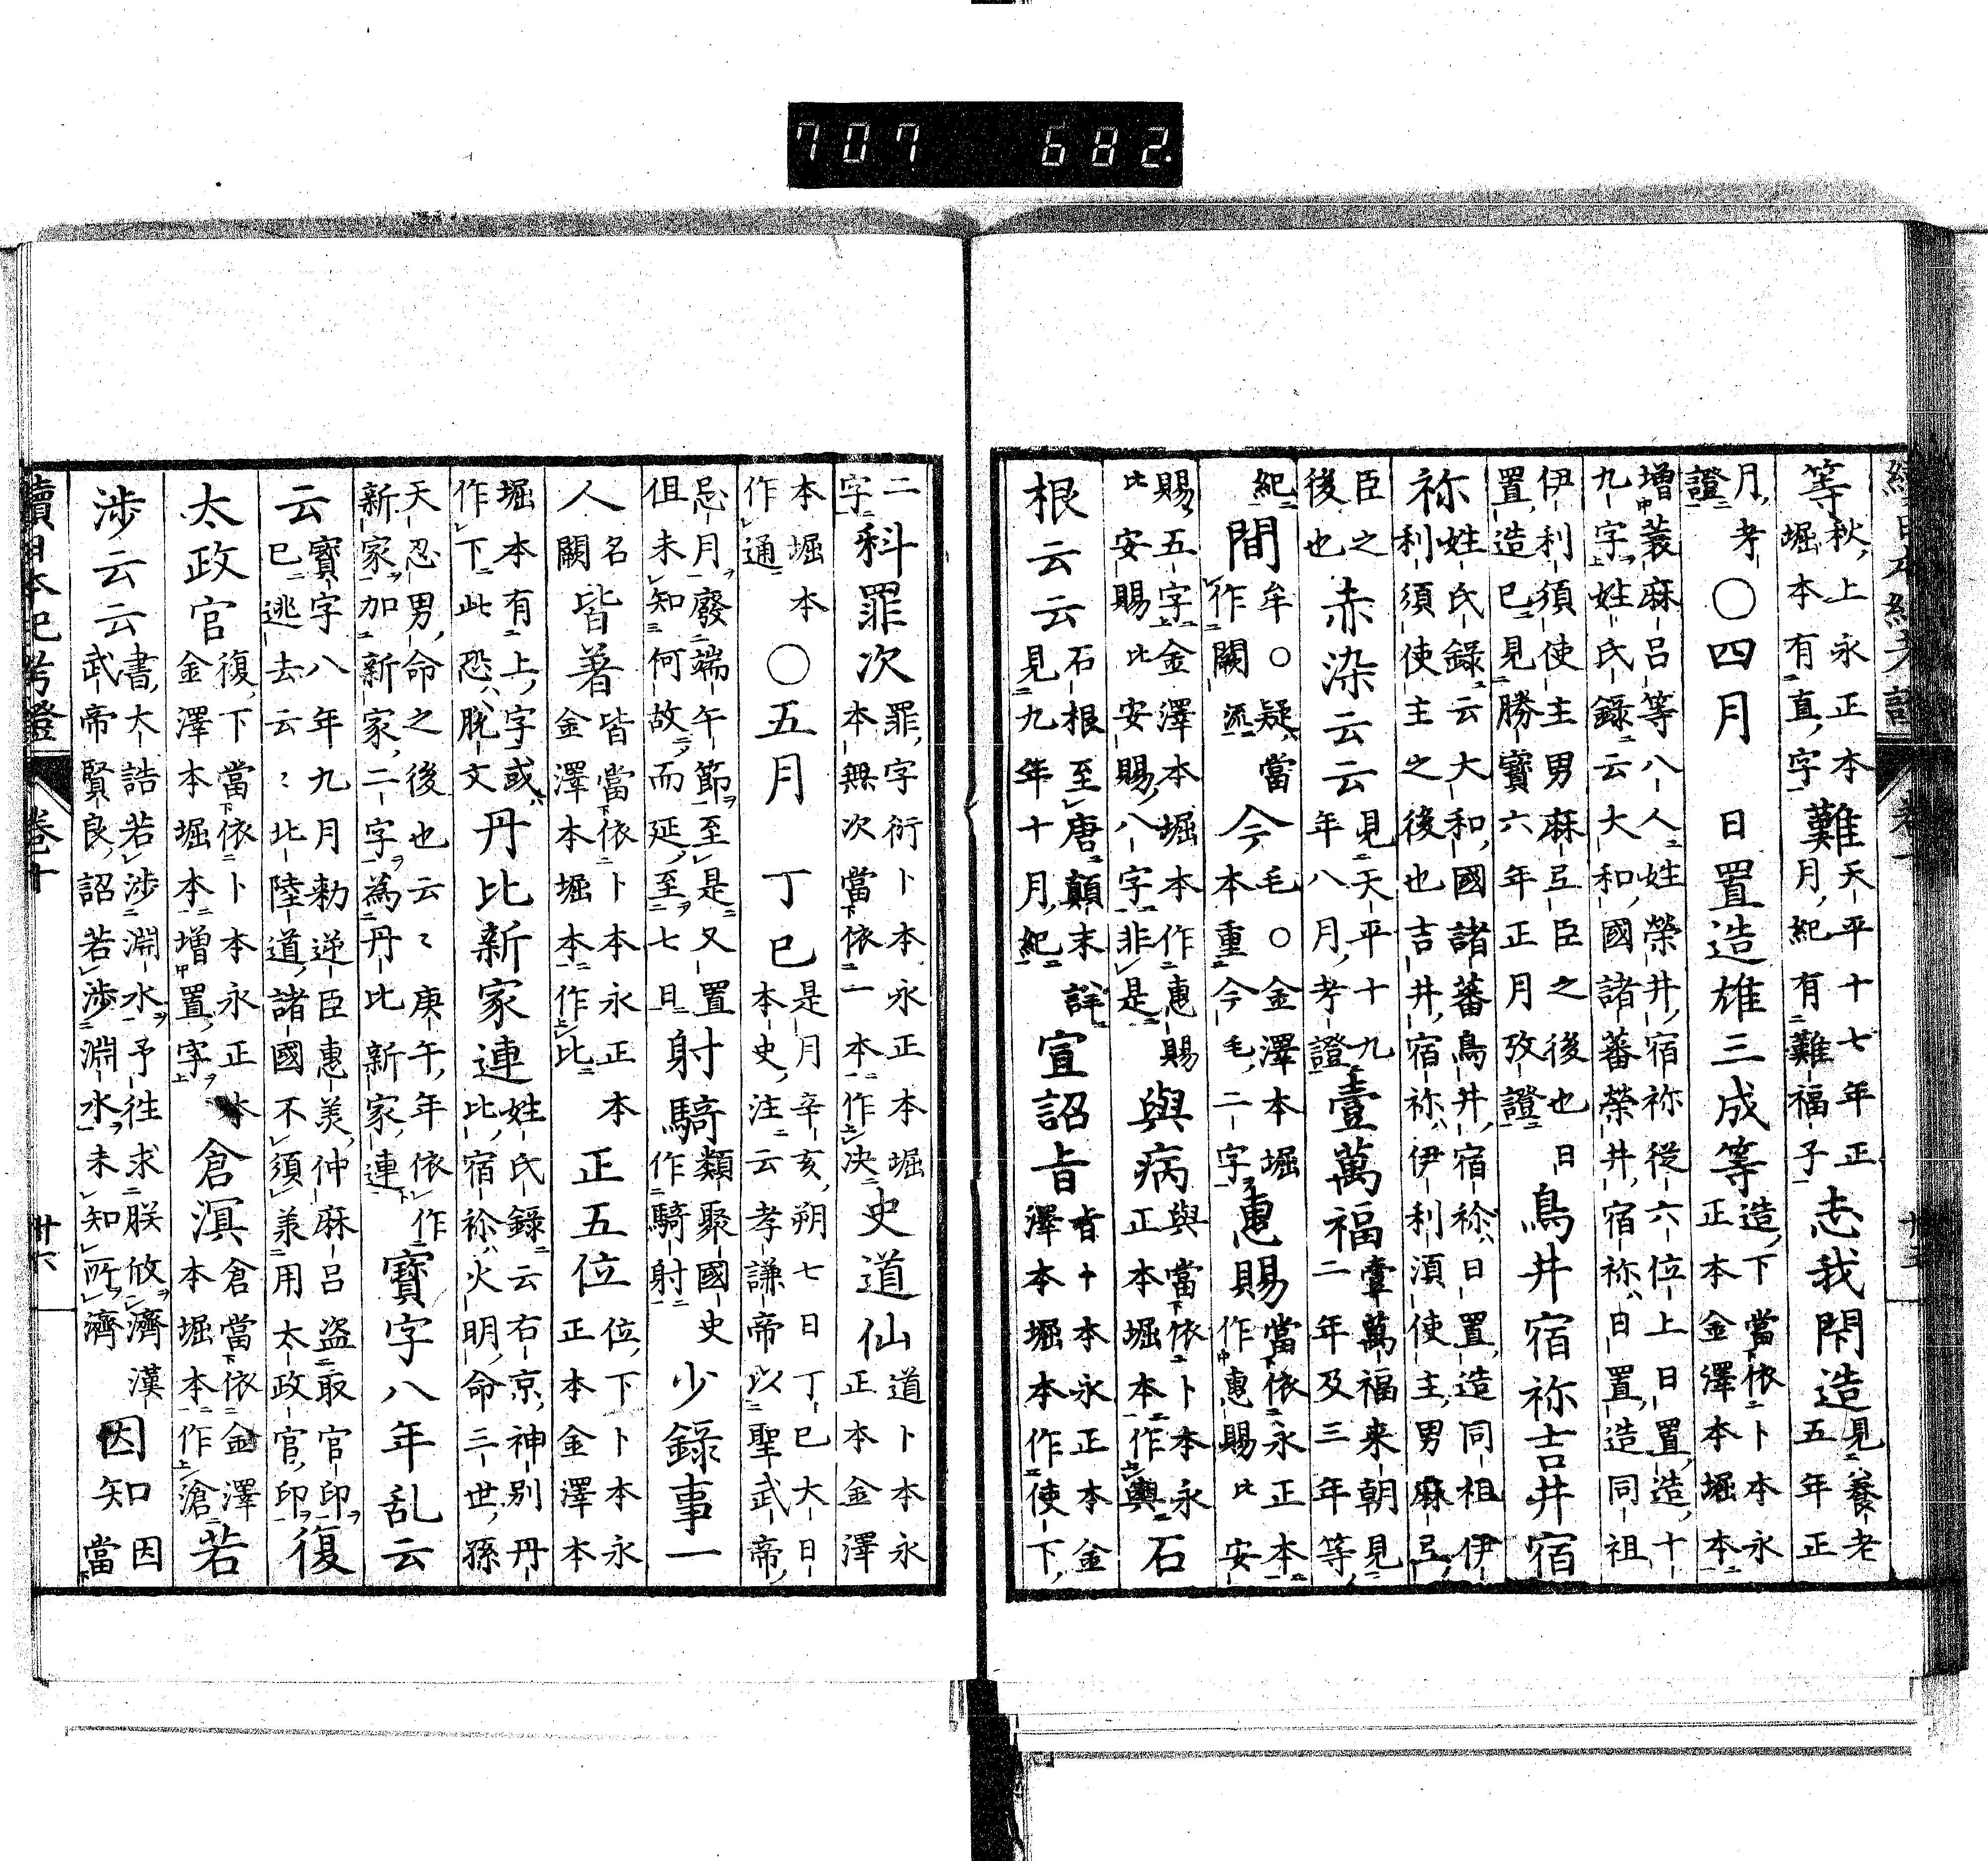 等秋上永正本堀本有真字難天平十七年正月紀有難福子志我閇造見養老五年正
月考證○四月 日置造雄三成等造下當依卜本永正本金澤本堀本
增蓑麻呂等八人姓榮井宿祢從六位上日置造十九字姓氏錄云大和國諸蕃榮井宿祢日置造同祖
伊利須使主男麻弖臣之後也日置造已見勝寶六年正月攷證鳥井宿祢吉井宿
祢姓氏錄云大和國諸蕃鳥井宿祢日置造同祖伊利須使主之後也吉井宿祢伊利須使主男麻弖
臣之後也赤染云云見天平十九年八月考證壹萬福壹萬福来朝見二年及三年等
紀間牟○疑當作闕流今毛○金澤本堀本重今毛二字惠賜當依永正本作惠賜比安
賜五字金澤本堀本作惠賜比安賜比安賜八字非是與病與當依卜本永正本堀本作輿石
根云云石根至唐顛末詳見九年十月紀宣詔㫖㫖卜本永正本金澤本堀本作使下
二字科罪次罪字衍卜本永正本堀本無次當依一本作決史道仙道卜本永正本金澤
本堀本作通○五月 丁巳是月辛亥朔七日丁巳大日本史注云孝謙帝以聖武帝
忌月廢端午節至是又置但未知何故而延至七日射騎類聚國史作騎射少錄事一
人名闕皆著皆當依卜本永正本金澤本堀本作比正五位位下卜本永正本金澤本
堀本有上字或作下此恐脫文丹比新家連姓氏錄云右京神別丹比宿祢火明命三世孫
天忍男命之後也云〻庚午年依作新家加新家二字為丹比新家連寶字八年乱云
云寶字八年九月勅逆臣惠美仲麻呂盗取官印已逃去云〻北陸道諸國不須兼用太政官印復
太政官復下當依卜本永正本金澤本堀本增置字倉溟倉當依金澤本堀本作滄若
涉云云書大誥若涉淵水予往求朕攸濟漢武帝賢良詔若涉淵水未知所濟因知因當
續日本紀考證 卷十 廿六